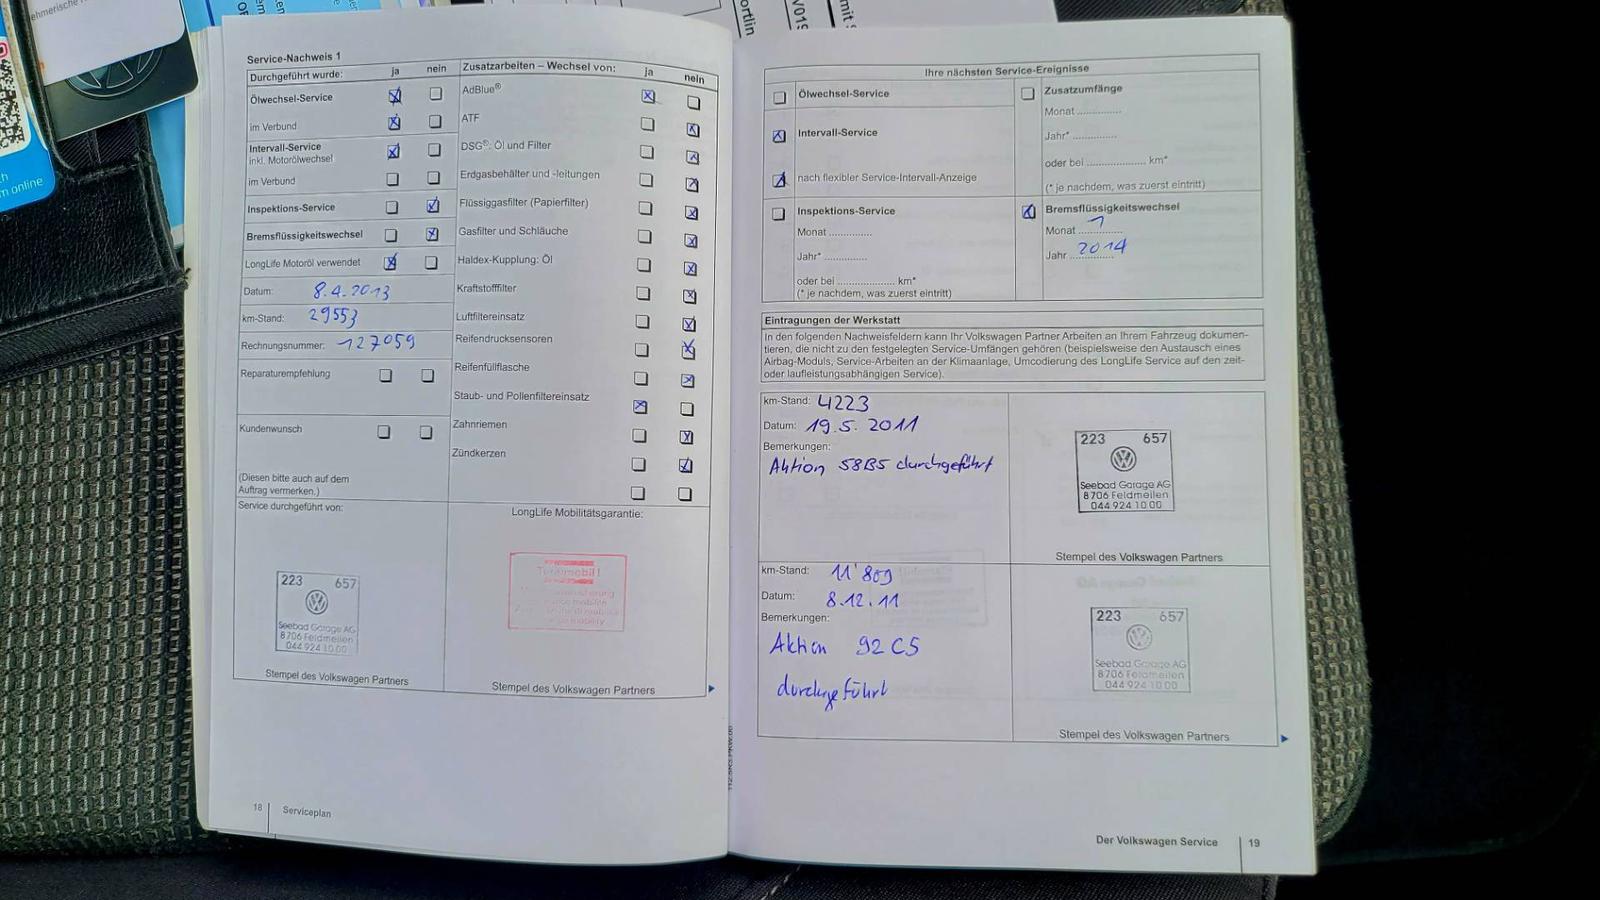 Service-Nachweis 1
Durchgeführt wurde: ja nein
Ölwechsel-Service
im Verbund
Intervall-Service
inkl. Motorölwechsel
im Verbund
Inspektions-Service
Bremsflüssigkeitswechsel
LongLife Motoröl verwendet
Datum: 8.4.2013
km-Stand: 29553
Rechnungsnummer: 127059
Reparaturempfehlung
Kundenwunsch
(Diesen bitte auch auf dem
Auftrag vermerken.)
Zusatzarbeiten – Wechsel von: ja nein
AdBlue®
ATF
DSG®: Öl und Filter
Erdgasbehälter und -leitungen
Flüssiggasfilter (Papierfilter)
Gasfilter und Schläuche
Haldex-Kupplung: Öl
Kraftstofffilter
Luftfiltereinsatz
Reifendrucksensoren
Reifenfüllflasche
Staub- und Pollenfiltereinsatz
Zahnriemen
Zündkerzen
Service durchgeführt von:
223 657
Seebad Garage AG
8706 Feldmeilen
044 924 10 00
Stempel des Volkswagen Partners
LongLife Mobilitätsgarantie:
Stempel des Volkswagen Partners
18 Serviceplan
Ihre nächsten Service-Ereignisse
Ölwechsel-Service
Intervall-Service
nach flexibler Service-Intervall-Anzeige
Inspektions-Service
Monat ..............
Jahr* ..............
oder bei .................... km*
(* je nachdem, was zuerst eintritt)
Zusatzumfänge
Monat ..............
Jahr* ..............
oder bei .................... km*
(* je nachdem, was zuerst eintritt)
Bremsflüssigkeitswechsel
Monat 1
Jahr 2014
Eintragungen der Werkstatt
In den folgenden Nachweisfeldern kann Ihr Volkswagen Partner Arbeiten an Ihrem Fahrzeug dokumen-
tieren, die nicht zu den festgelegten Service-Umfängen gehören (beispielsweise den Austausch eines
Airbag-Moduls, Service-Arbeiten an der Klimaanlage, Umcodierung des LongLife Service auf den zeit-
oder laufleistungsabhängigen Service).
km-Stand: 4223
Datum: 19.5.2011
Bemerkungen:
Aktion 58B5 durchgeführt
223 657
Seebad Garage AG
8706 Feldmeilen
044 924 10 00
Stempel des Volkswagen Partners
km-Stand: 11'809
Datum: 8.12.11
Bemerkungen:
Aktion 92C5
durchgeführt
223 657
Seebad Garage AG
8706 Feldmeilen
044 924 10 00
Stempel des Volkswagen Partners
Der Volkswagen Service 19